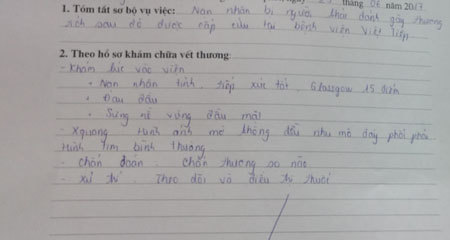 ngày 23 tháng 06 năm 2017
1. Tóm tắt sơ bộ vụ việc: Nạn nhân bị người khác đánh gây thương
tích sau đó được cấp cứu tại bệnh viện Việt Tiệp
2. Theo hồ sơ khám chữa vết thương:
- Khám lúc vào viện
+ Nạn nhân tỉnh, tiếp xúc tốt, Glasgow 15 điểm
+ Đau đầu
+ Sưng nề vùng đầu mặt
- Xquang hình ảnh mờ không đều nhu mô đáy phổi phải.
Hình tim bình thường
- Chẩn đoán. Chấn thương sọ não
- Xử trí. Theo dõi và điều trị thuốc